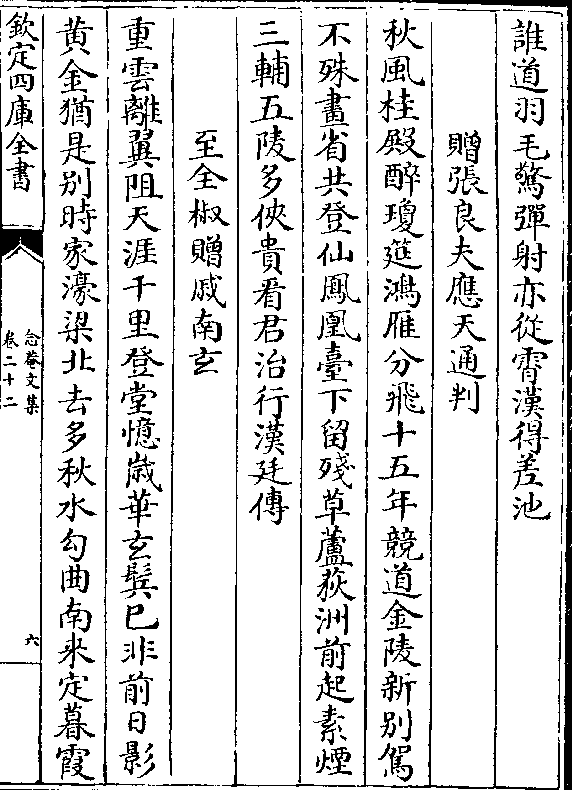 誰道羽毛驚彈射亦從霄漢得差池
贈張良夫應天通判
秋風桂殿醉瓊筵鴻雁分飛十五年競道金陵新別駕
不殊畫省共登仙鳳凰臺下留殘草蘆荻洲前起素煙
三輔五陵多俠貴看君治行漢廷傳
至全椒贈戚南玄
重雲離翼阻天涯千里登堂憶歲華玄鬂已非前日影
黄金猶是別時家濠梁北去多秋水勾曲南来定暮霞
欽定四庫全書
念菴文集
卷二十二
六